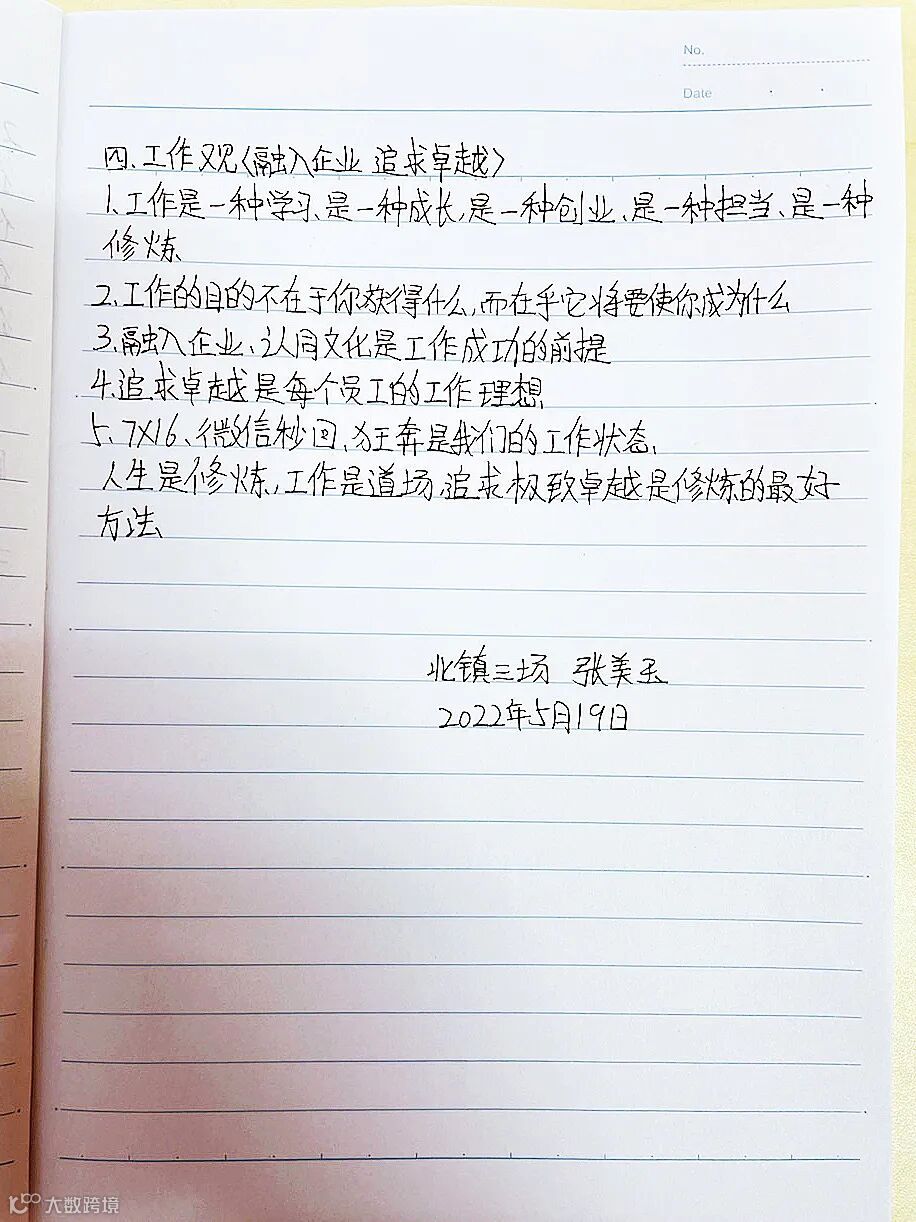 No.
Date
四、工作观〈融入企业 追求卓越〉
1、工作是一种学习、是一种成长,是一种创业、是一种担当、是一种
修炼、
2、工作的目的不在于你获得什么,而在乎它将要使你成为什么
3、融入企业、认同文化是工作成功的前提
4、追求卓越是每个员工的工作理想、
5、7X16、微信秒回、狂奔是我们的工作状态、
人生是修炼,工作是道场,追求极致卓越是修炼的最好
方法、
北镇三场 张美玉
2022年5月19日
大数跨境